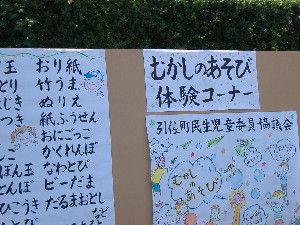 むかしのあそび
体験コーナー
引佐町民生児童委員協議会
むかし
あそび
おり紙
竹うま
ぬりえ
紙ふうせん
おにごっこ
かくれんぼ
なわとび
ビーだま
だるまおとし
など
玉
とり
はじき
つき
こ
ぽん玉
とんぼ
ひこうき